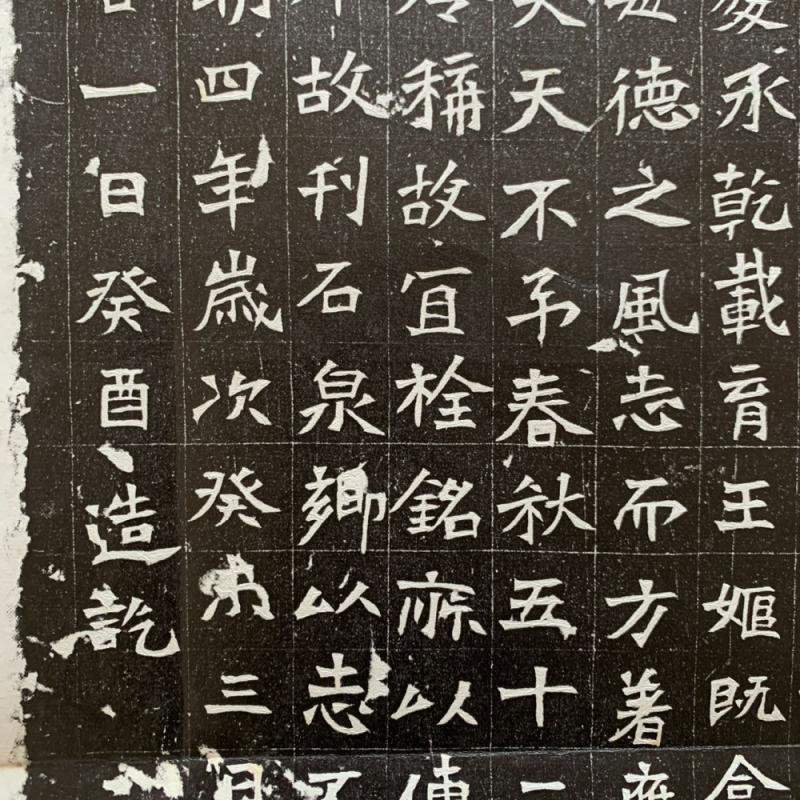 承乾載育王姬既合
德之風志而方著
天不予春秋五十二
稱故宜栓銘以傳
故刊石泉卿以志不
四年歲次癸三月
一日癸酉造訖